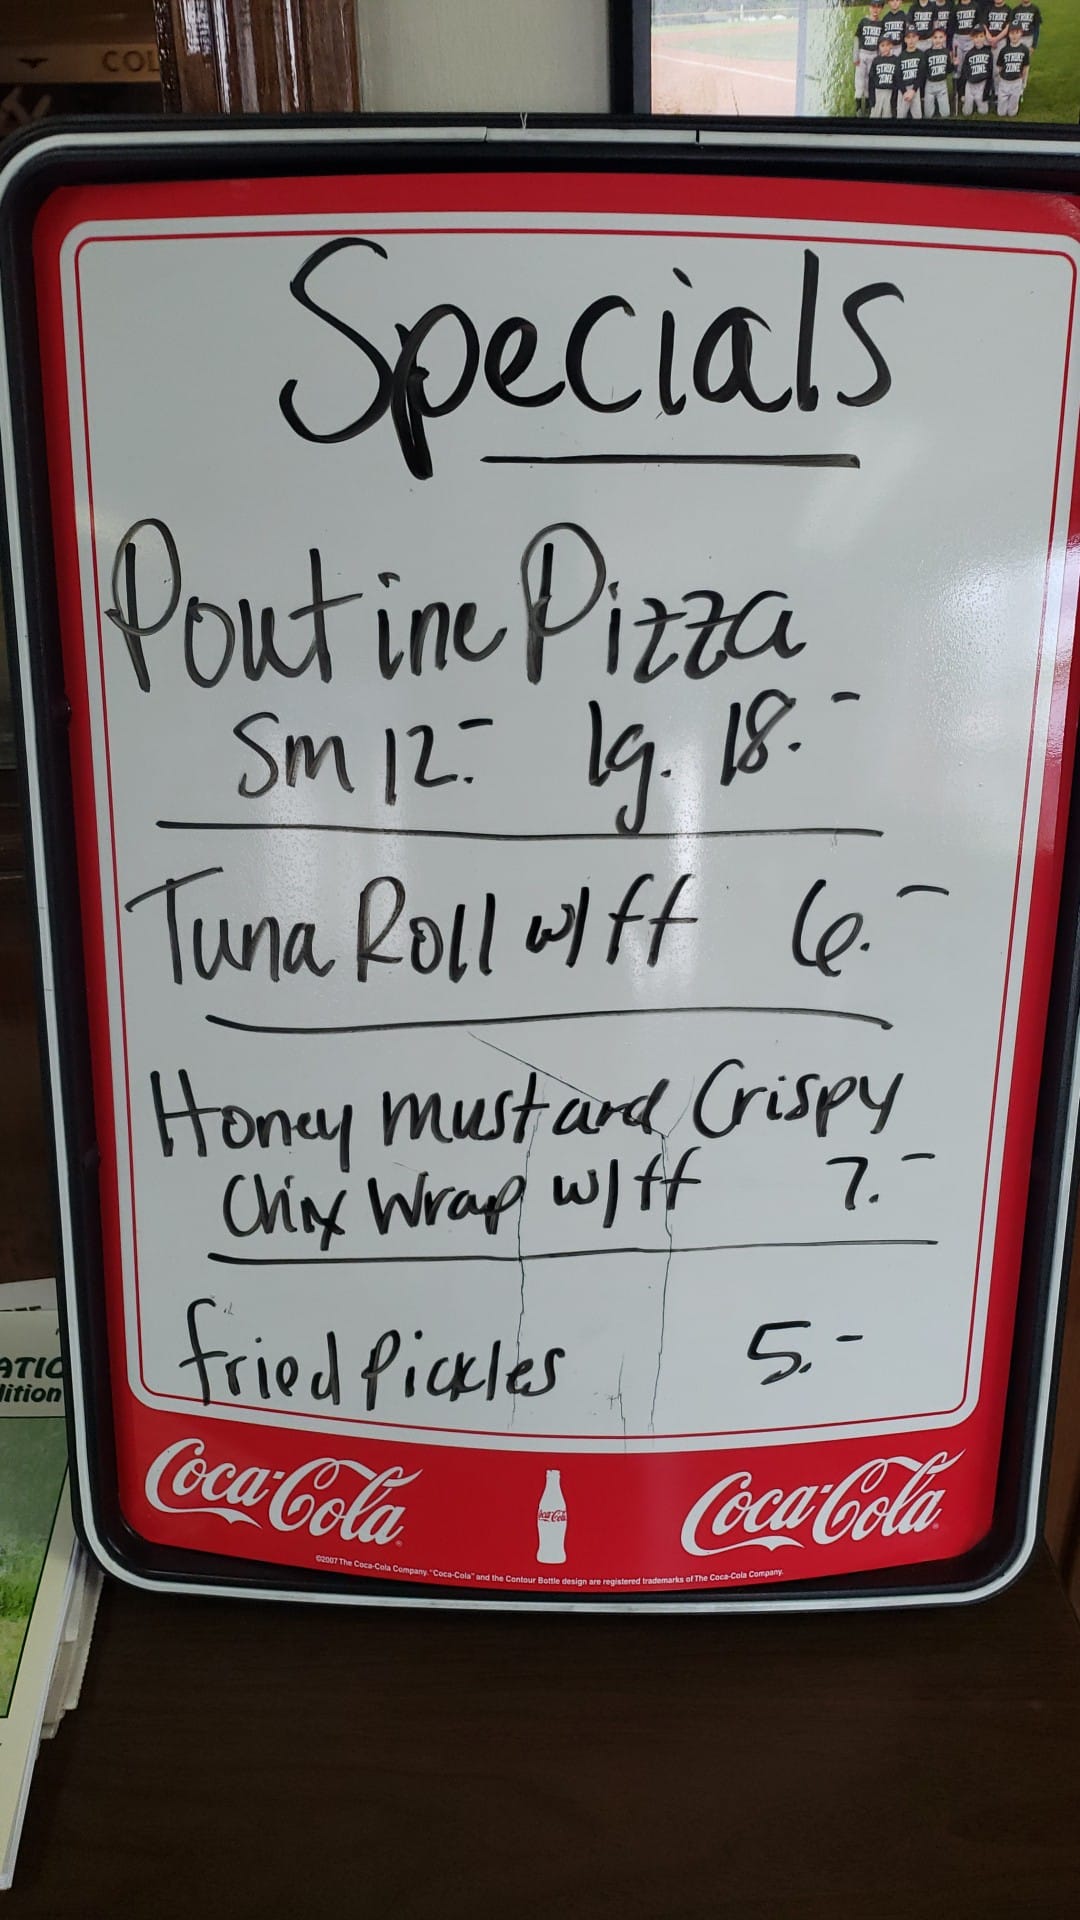 COL
STRIKE ZONE
Specials
Poutine Pizza
Sm 12.- lg. 18.-
Tuna Roll w/ff 6.-
Honey Mustard Crispy
Chix Wrap w/ff 7.-
fried Pickles 5.-
Coca-Cola Coca-Cola Coca-Cola
©2007 The Coca-Cola Company. "Coca-Cola" and the Contour Bottle design are registered trademarks of The Coca-Cola Company.
ATIO
lition